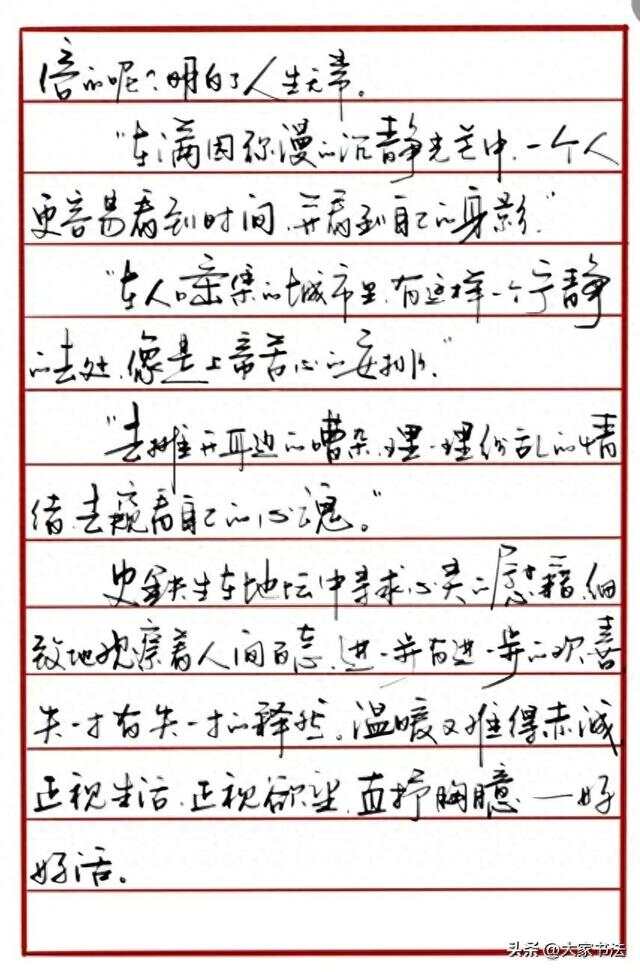 倍的呢？明白了人生无常。
“在满园弥漫的沉静光芒中，一个人
更容易看到时间，并看到自己的身影”
“在人口密集的城市里，有这样一个宁静
的去处，像是上帝苦心的安排。”
“去推开耳边的嘈杂，理一理纷乱的情
绪，去窥看自己的心魂。”
史铁生在地坛中寻求心灵的慰藉，细
致地观察着人间百态，进一步有进一步的欢喜
失一才有失一才的释然。温暖又难得赤诚
正视生活，正视欲望，直抒胸臆——好
好活。
头条 @大家书法